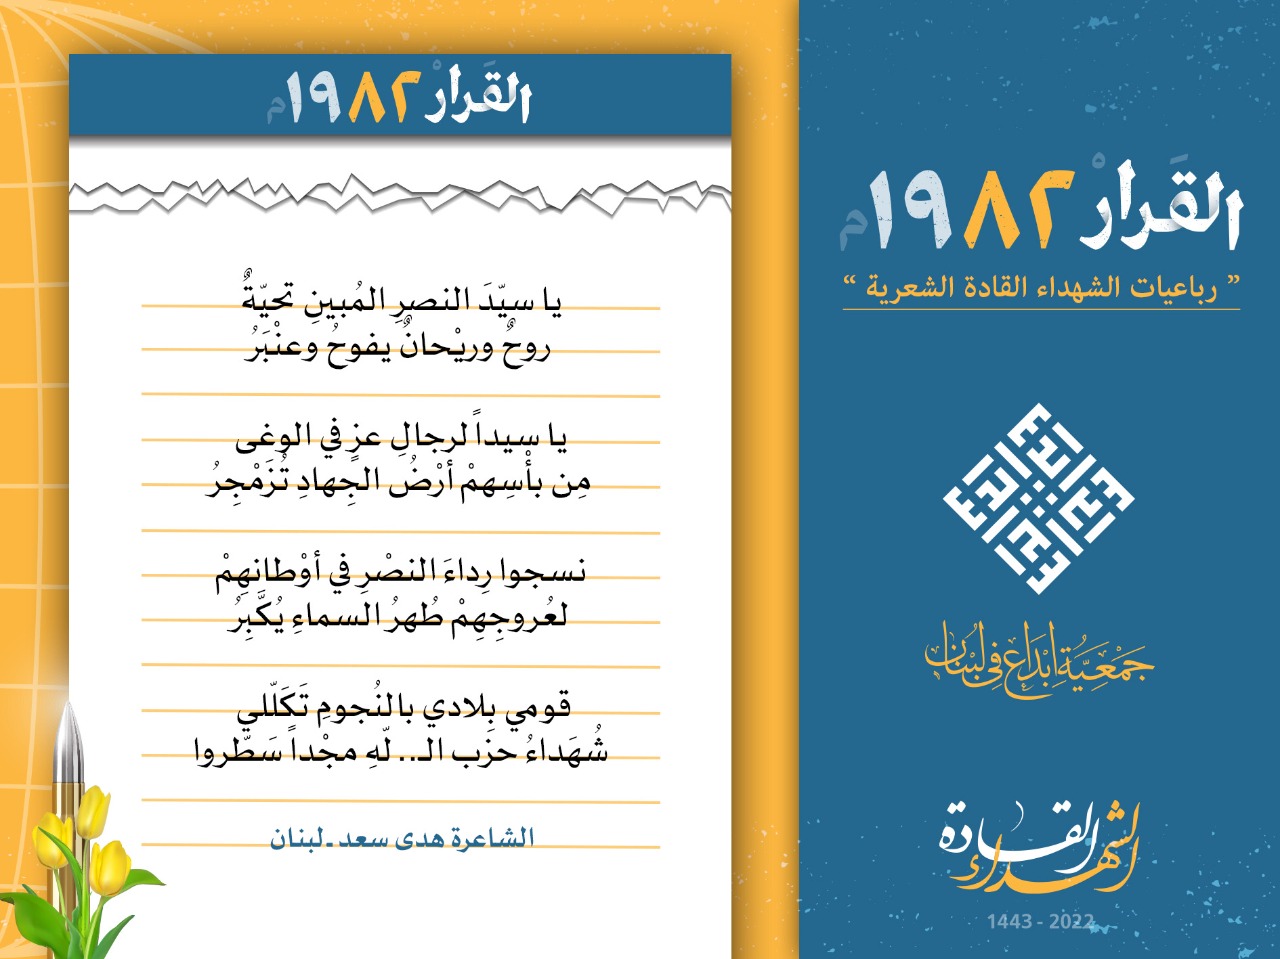 القَرارْ ١٩٨٢م
يا سيّدَ النصرِ المُبينِ تحيّةٌ
روحٌ وريْحانٌ يفوحُ وعنْبَرُ
يا سيداً لرجالِ عزٍ في الوغى
مِن بأْسِهمْ أرْضُ الجِهادِ تُزَمْجِرُ
نسجوا رِداءَ النصْرِ في أوْطانهِمْ
لعُروجِهِمْ طُهرُ السماءِ يُكَّبِرُ
قومي بِلادي بالنُجومِ تَكَلّلي
شُهَداءُ حزَب الـ.. لّهِ مجْداً سَطّروا
الشاعرة هدى سعد ـ لبنان
القَرارْ ١٩٨٢م
” رباعيات الشهداء القادة الشعرية “
إبداع
جَمْعِيَّة إبْدَاع فِي لُبْنَان
الشهداء القادة
1443 - 2022